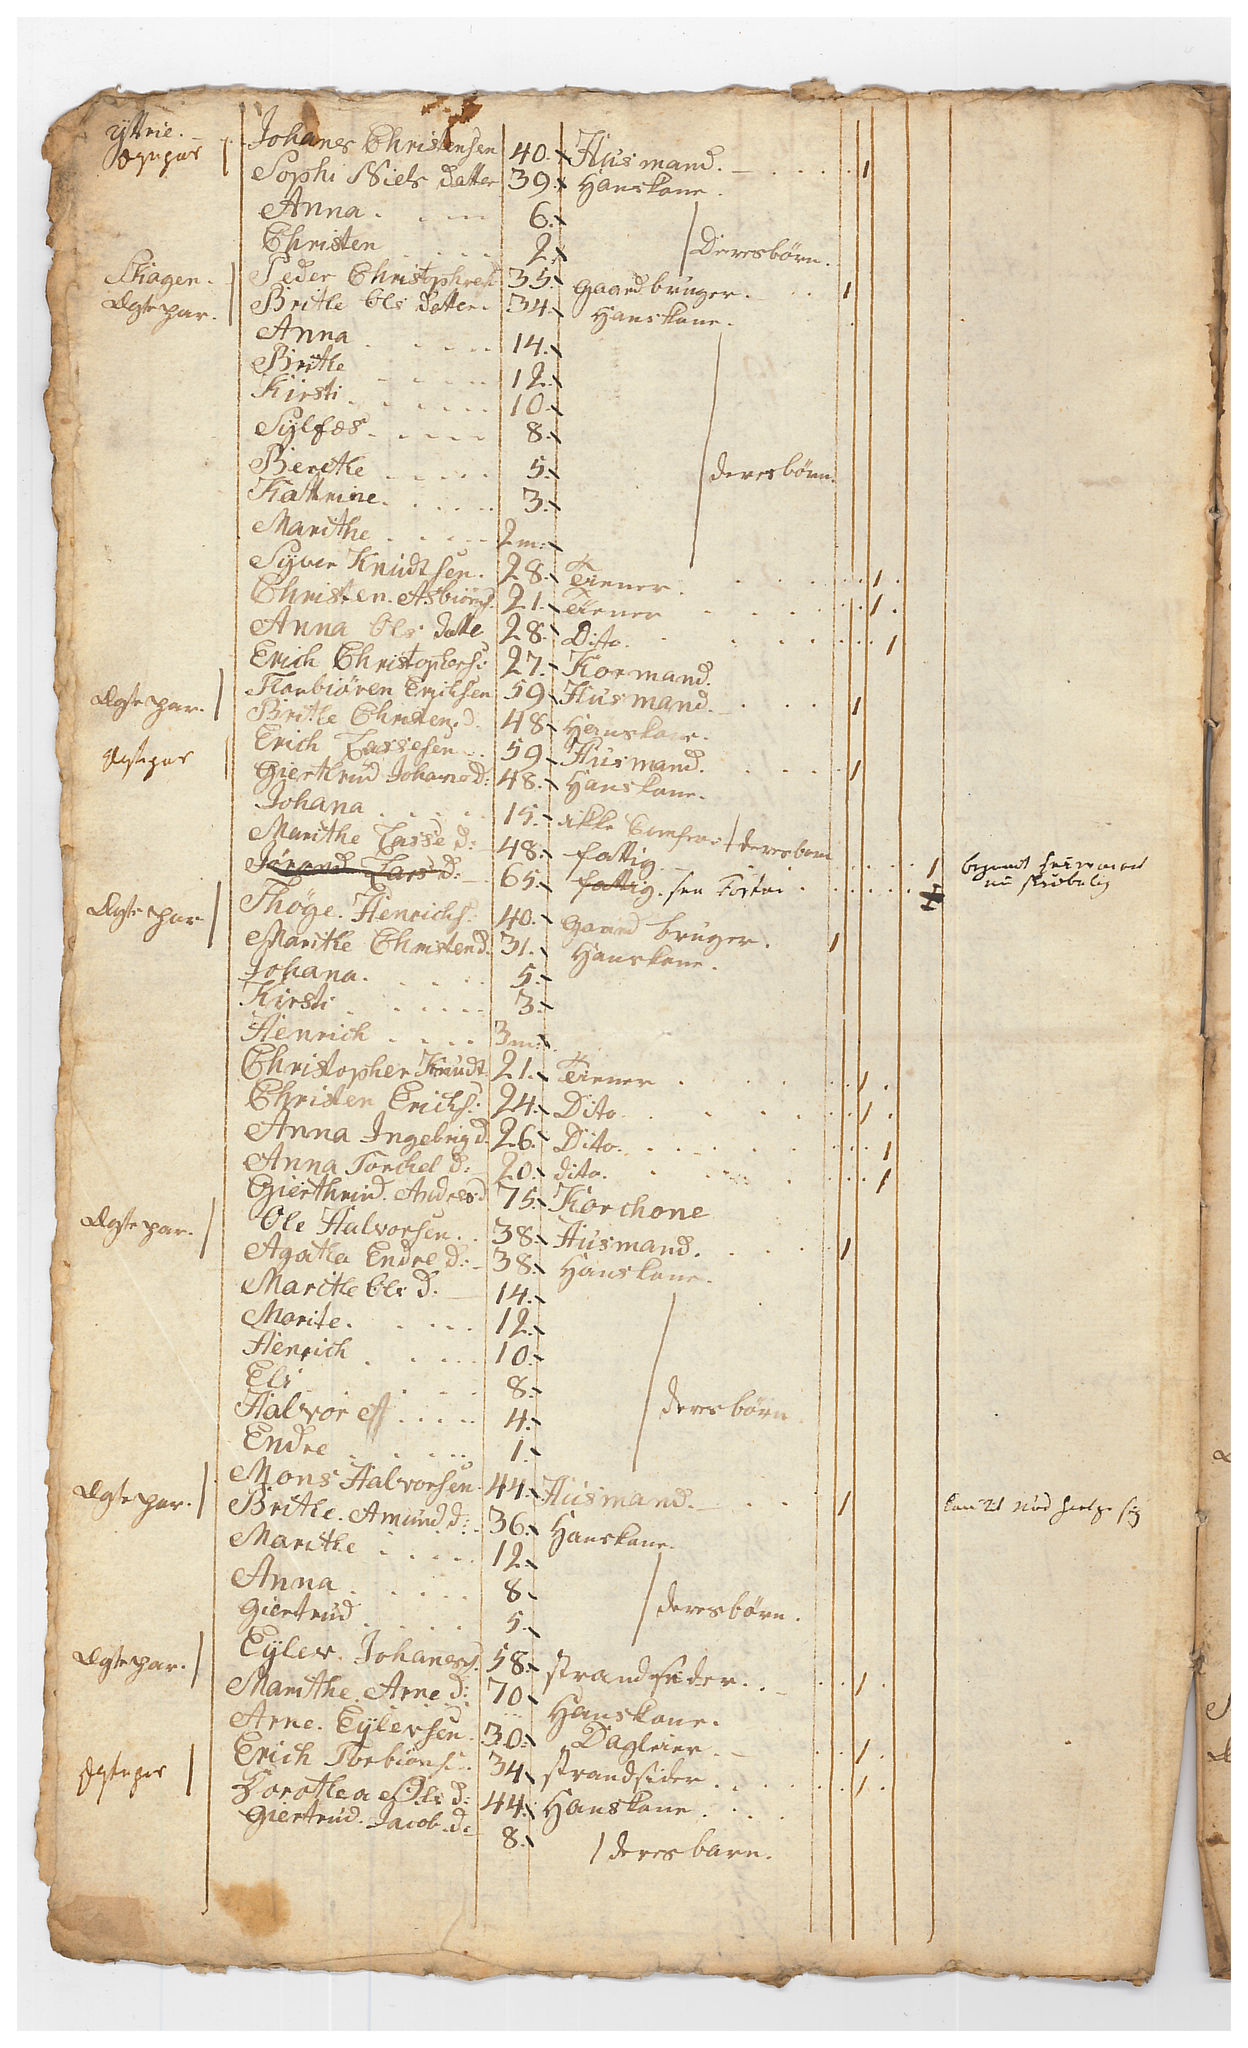 yttrie. Johanes Christensen 40. Husmand. 1
Ægtepar Sophi Niels datter 39. Hans kone.
Anna 6.
Christen 2. Deres børn.
Skagen. Peder Christophers 35. gaard bruger. 1
Ægte par. Brithe Ols datter. 34. Hans kone.
Anna 14.
Brithe 12.
Kirsti 10.
Sylfæs 8.
Berethe 5. deres børn.
Kattrine. 3.
Marithe 2 m:
Syver Knudtsen. 28. Tiener. 1
Christen. Asbiørns. 21. Tiener 1
Anna Ols datte 28. Dito. 1
Erich Christophers: 27. Kormand.
Ægte par. Torbiören Erichsen 59 Husmand. 1
Brithe Christen. d. 48 Hans kone.
Ægtepar Erich Lassesen 59 Husmand. 1
Gierthrud Johans d: 48. Hans kone.
Johana 15. ikke Comfere deres barn
Marithe Lasse d: 48. fattig 1
Jørand Lars d: 65. fattig.
nu skrøbelig
Ægte par. Thöge. Henrichs. 40. gaard bruger. 1
Marithe Christend. 31. Hans kone.
Johana. 5.
Kirsti 3.
Henrich 3 m:
Christopher Knudt 21. Tiener 1
Christen Erichs: 24. Dito. 1
Anna Ingebrig d. 26. Dito. 1
Anna Torchel d: 20. dito. 1
Gierthrud. Andres d 75. Korchone
Ægte par. Ole Halvorsen. 38. Husmand. 1
Agatha Endre d: 38. Hans kone.
Marithe Ols d: 14.
Marite. 12.
Henrich 10.
Eli 8.
Halvor 4. deres børn.
Endre 1.
Ægte par. Mons Halvorsen. 44. Husmand. 1 kan til Nød hielpe sig
Brithe. Amund d: 36. Hans kone.
Marithe 12.
Anna 8.
Giertrud 5. deres børn.
Ægte par. Eyler. Johanes. 58. strandsider. 1
Marithe. Arne d: 70 Hans kone.
Arne. Eylersen. 30. Dagleier. 1
Ægtepar Erich Torbiörns: 34 strandsider. 1
Dorothea Ols d: 44. Hans kone.
Giertrud. Jacob. d: 8. deres barn.